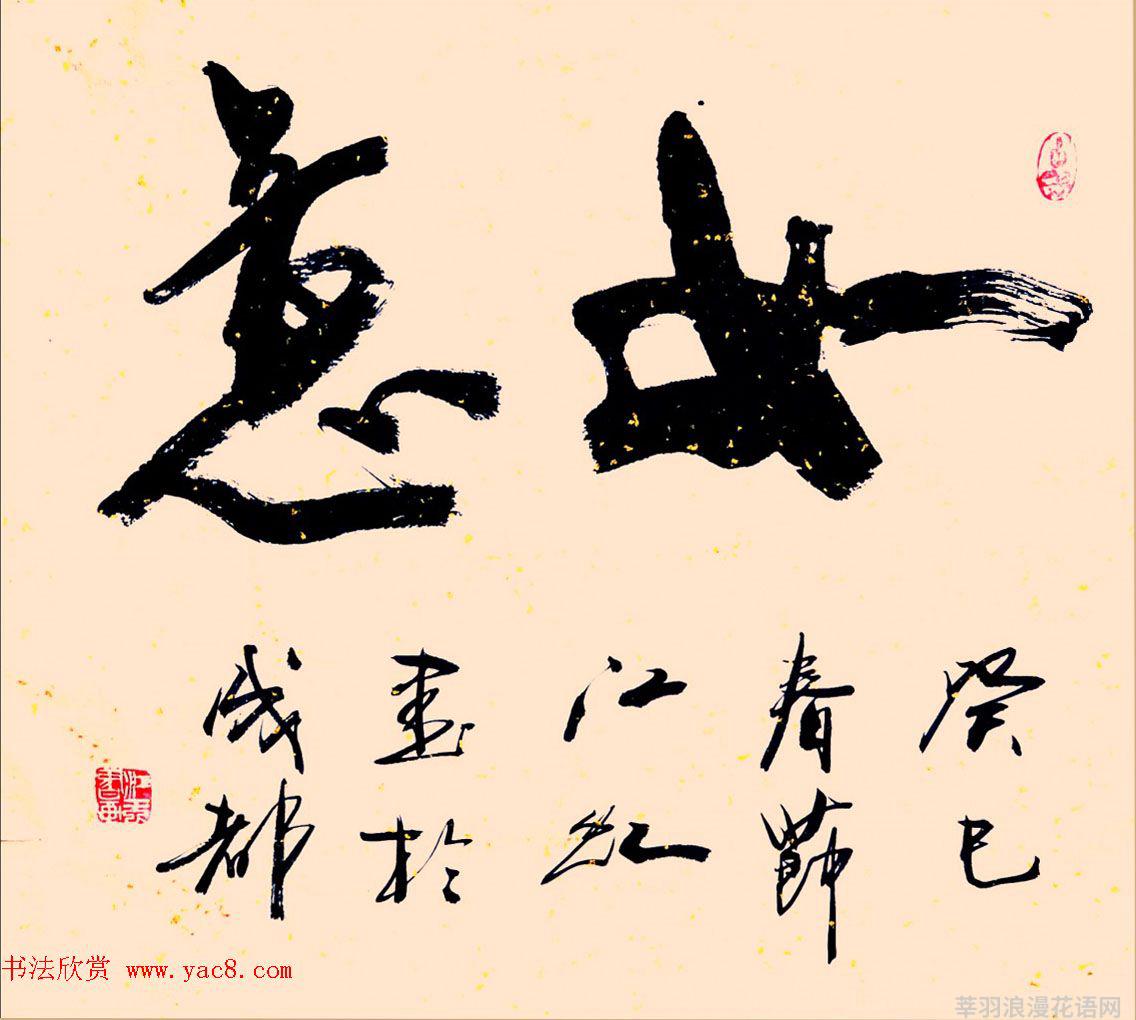 如意
癸巳
春節
江红
書於
成都
书法欣赏 www.yac8.com
莘羽浪漫花语网